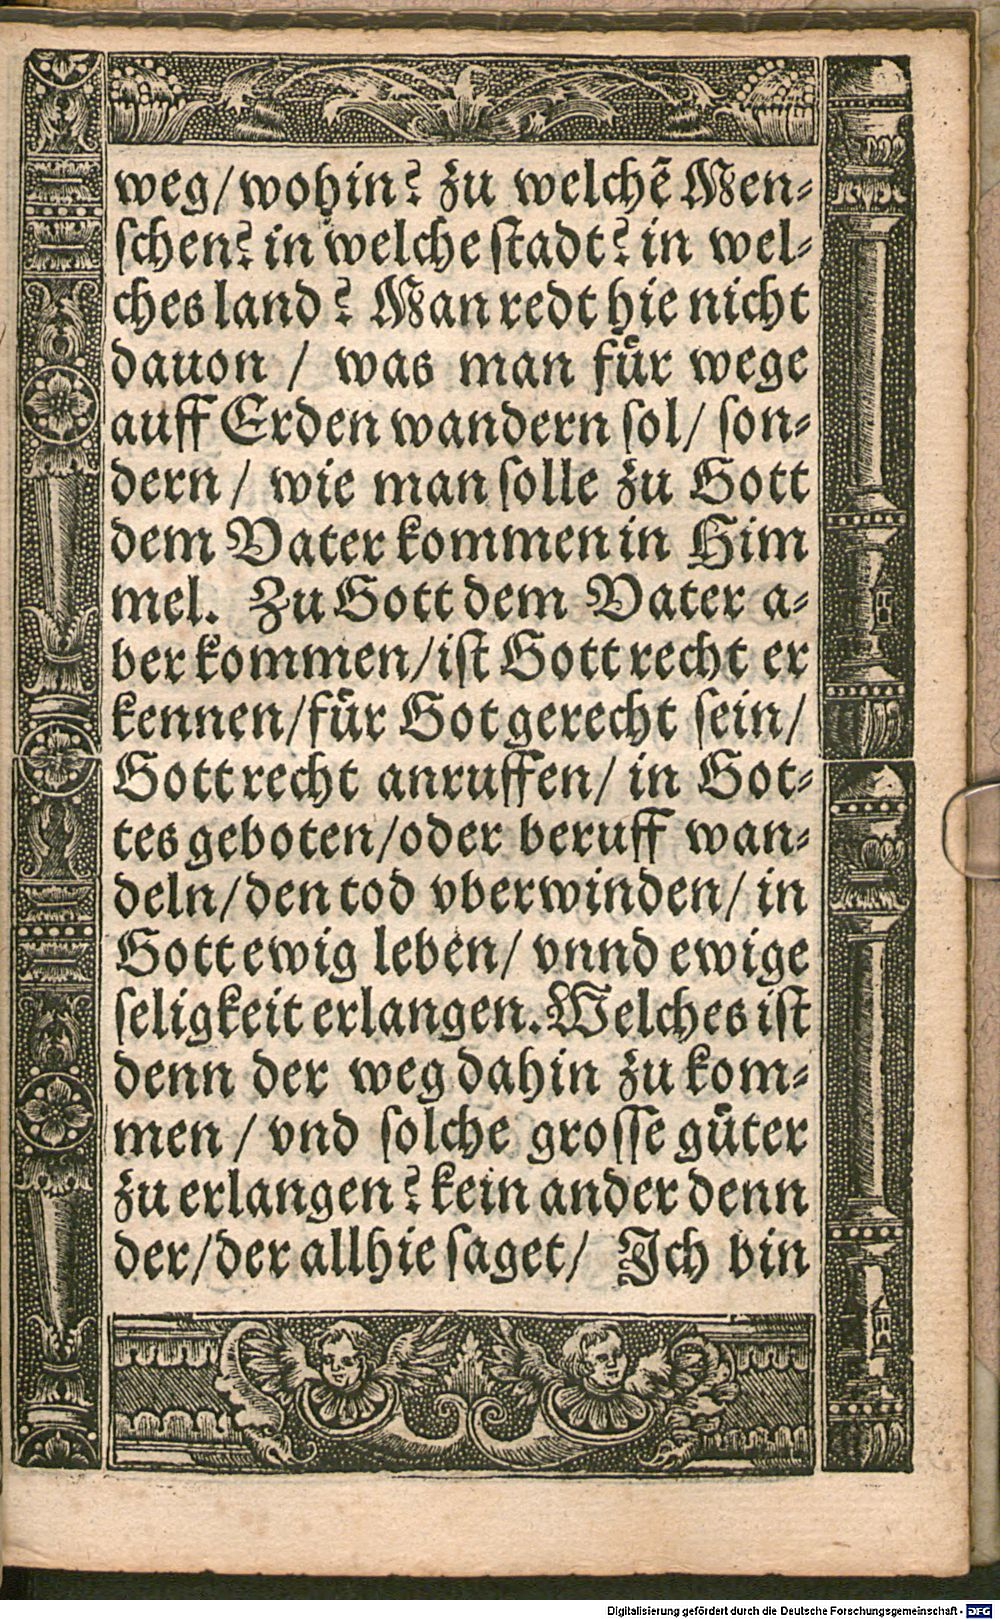 weg/wohin? zu welchē Men⸗
ſchen? in welche ſtadt? in wel⸗
ches land? Man redt hie nicht
dauon / was man fuͤr wege
auff Erden wandern ſol/ ſon⸗
dern / wie man ſolle zu Gott
dem Vater kommen in Him
mel. Zu Gott dem Vater a⸗
ber kommen/iſt Gott recht er
kennen/fuͤr Got gerecht ſein/
Gott recht anruffen/ in Got⸗
tes geboten/oder beruff wan⸗
deln/den tod vberwinden/ in
Gott ewig leben/ vnnd ewige
ſeligkeit erlangen. Welches iſt
denn der weg dahin zu kom⸗
men / vnd ſolche groſſe guͤter
zu erlangen? kein ander denn
der/der allhie ſaget/ Ich bin
Digitalisierung gefördert durch die Deutsche Forschungsgemeinschaft - DFG